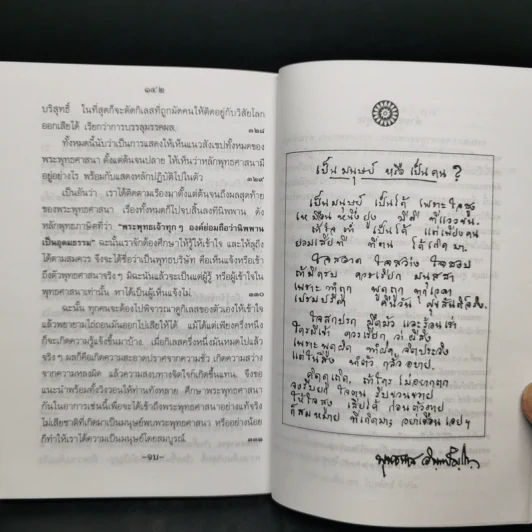 ๑๔๒
บริสุทธิ์ ในที่สุดก็จะตัดกิเลสที่ผูกมัดคนให้ติดอยู่กับวิสัยโลก
ออกเสียได้ เรียกว่าการบรรลุมรรคผล.
๓๒๘
ทั้งหมดนี้นับว่าเป็นการแสดงให้เห็นแนวสังเขปทั้งหมดของ
พระพุทธศาสนา ตั้งแต่ต้นจนปลาย ให้เห็นว่าหลักพุทธศาสนามี
อยู่อย่างไร พร้อมกับแสดงหลักปฏิบัติไปในตัว
๓๒๙
เป็นอันว่า เราได้ติดตามเรื่องมาตั้งแต่ต้นจนถึงผลสุดท้าย
ของพระพุทธศาสนา เรื่องทั้งหมดก็ไปจบสิ้นลงที่นิพพาน ดัง
หลักพุทธภาษิตที่ว่า "พระพุทธเจ้าทุกๆ องค์ย่อมถือว่านิพพาน
เป็นอุดมธรรม" ฉะนั้นเราจักต้องศึกษาให้รู้ให้เข้าใจ และให้ลุถึง
ได้ตามสมควร จึงจะได้ชื่อว่าเป็นพุทธบริษัท คือเห็นแจ้งหรือเข้า
ถึงตัวพุทธศาสนาจริงๆ มิฉะนั้นแล้วจะเป็นแต่ผู้รู้ หรือผู้เข้าใจใน
พุทธศาสนาเท่านั้น หาได้เป็นผู้เห็นแจ้งไม่.
๓๓๐
ฉะนั้น ทุกคนจะต้องไปพิจารณาดูกิเลสของตัวเองให้เข้าใจ
แล้วพยายามไถ่ถอนมันออกไปเสียให้ได้ แม้ได้แต่เพียงครึ่งหนึ่ง
ก็จะเกิดความรู้แจ้งขึ้นมาบ้าง เมื่อกิเลสครึ่งหนึ่งมันหมดไปแล้ว
จริงๆ ผลก็คือเกิดความสะอาดปราศจากความชั่ว เกิดความสว่าง
จากความหลงผิด แล้วความสงบทางจิตใจก็เกิดขึ้นแทน. จึงขอ
แนะนำพร้อมทั้งวิงวอนให้ท่านทั้งหลาย ศึกษาพระพุทธศาสนา
กันในอาการเช่นนี้เพื่อจะได้เข้าถึงพระพุทธศาสนาอย่างแท้จริง
ไม่เสียชาติที่เกิดมาเป็นมนุษย์พบพระพุทธศาสนา หรืออย่างน้อย
ก็ทำให้เราได้ความเป็นมนุษย์โดยสมบูรณ์.
๓๓๑
-จบ-
เป็นมนุษย์ หรือ เป็นคน ?
เป็นมนุษย์ เป็นได้ เพราะใจสูง
เหมือนหนึ่งยูง มีดี ที่แววขน
ถ้าใจต่ำ เป็นได้ แต่เพียงคน
ย่อมเสียที ที่ตน ได้เกิดมา.
ใจสะอาด ใจสว่าง ใจสงบ
ถ้ามีครบ ควรเรียก มนุสสา
เพราะทำถูก พูดถูก ทุกเวลา
เปรมปรีดา คืนวัน สุขสันต์จริง.
ใจสกปรก มืดมัว และร้อนเร่า
ใครมีเข้า ควรเรียก ว่าผีสิง
เพราะพูดผิด ทำผิด จิตประวิง
แต่ในสิ่ง ทำตัว กลั้วอบาย.
คิดดูเถิด ถ้าใคร ไม่อยากตก
จงรีบยก ใจตน รีบขวนขวาย
ให้ใจสูง เสียได้ ก่อนตัวตาย
ก็สมหมาย ที่เกิดมา อย่าเชือนเอยฯ
พุทธทาส อินทปัญโญ